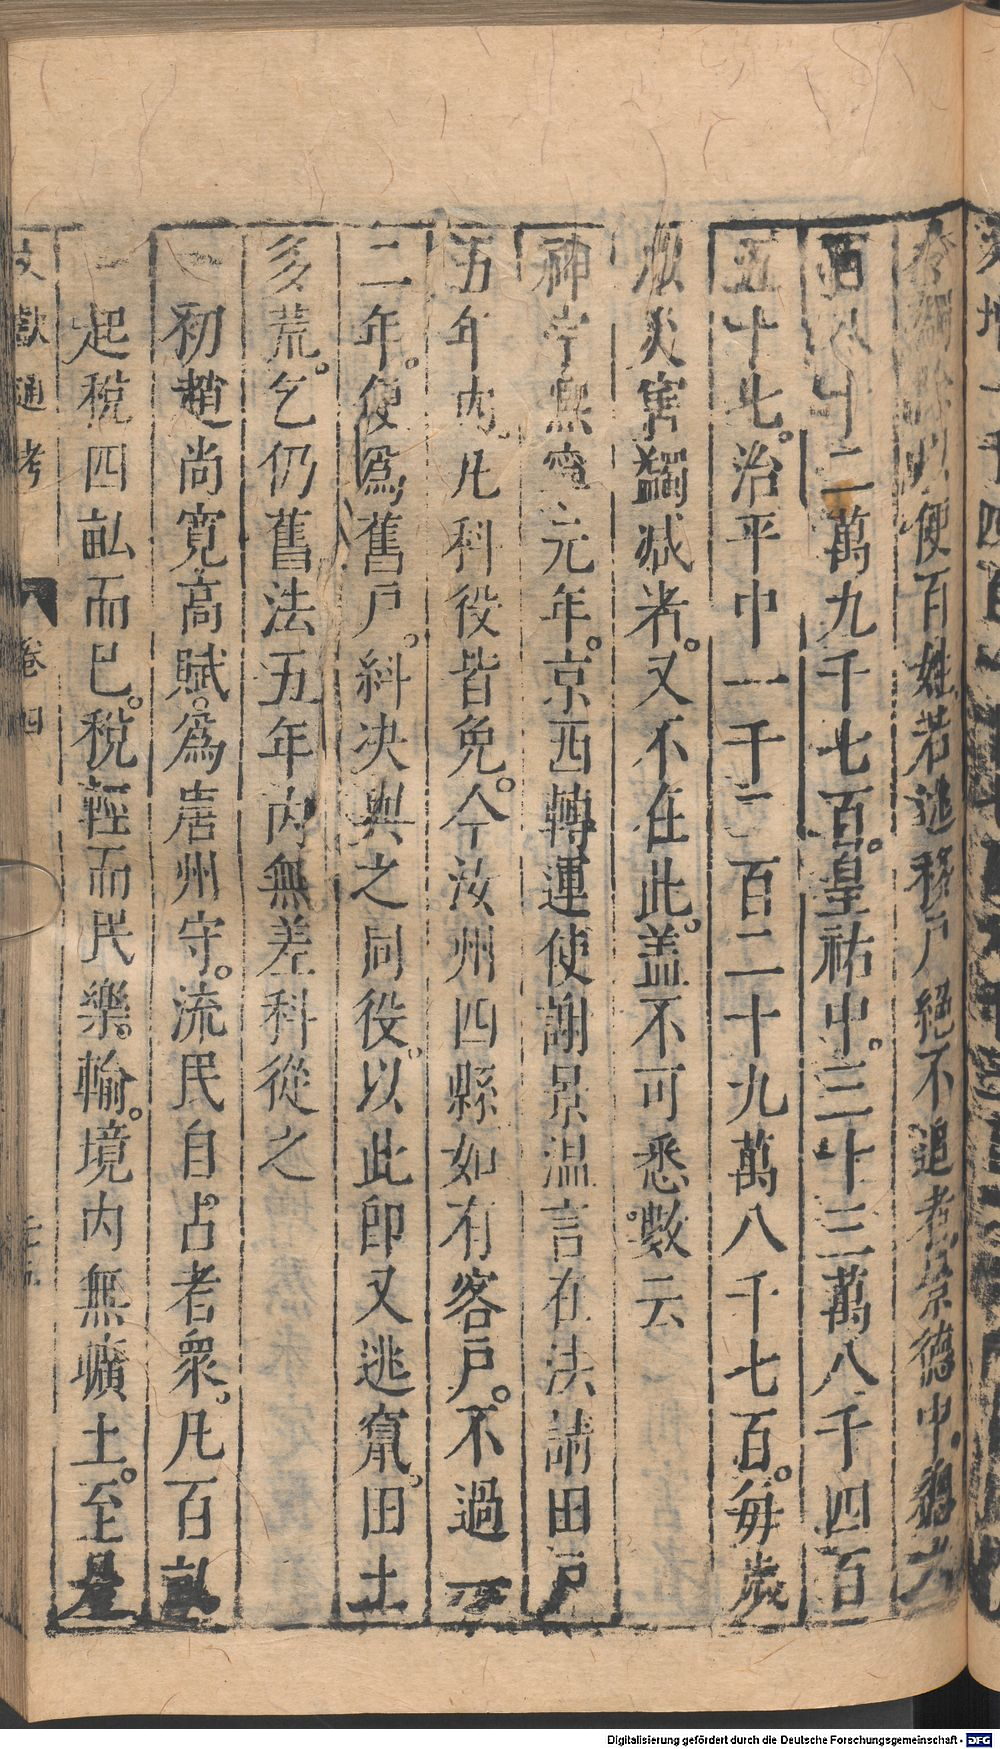 令蠲除以便百姓若逃移戶絕不追者景德中
百八十二萬九千七百。皇祐中。三十三萬八千四百
五十七。治平中一千二百二十九萬八千七百。每歲
災害蠲减者。又不在此。盖不可悉數云
神宗熙寧元年。京西轉運使謝景温言在法請田戶
五年内。凡科役皆免。今汝州四縣如有客戶。不過一
二年。便爲舊戶。糾决與之同役。以此卽又逃竄。田土
多荒。乞仍舊法五年内無差科從之
初趙尚寬高賦。爲唐州守。流民自占者衆。凡百畝
起稅四畝而已。稅輕而民樂。輸。境内無曠土。至是
文獻通考 卷四
Digitalisierung gefördert durch die Deutsche Forschungsgemeinschaft - DFG